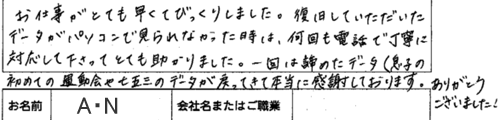 お仕事がとても早くてびっくりしました。復旧していただいた
データがパソコンで見られなかった時は、何回も電話で丁寧に
対応して下さってとても助かりました。一回は諦めたデータ(息子の
初めての運動会や七五三のデータが戻ってきて本当に感謝しております。
ありがとう
ございました!
お名前 A・N 会社名またはご職業